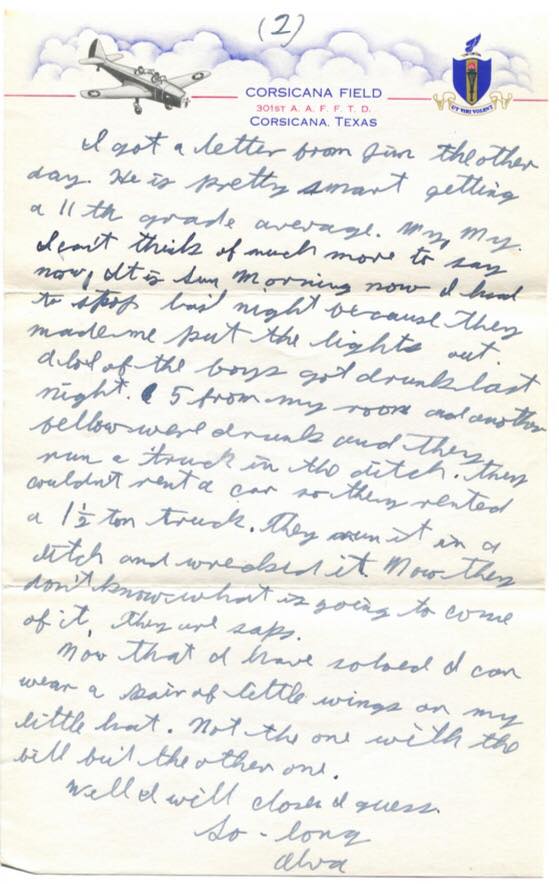 (2)
CORSICANA FIELD
301ST A. A. F. F. T. D.
CORSICANA, TEXAS
UT VIRI VOLENT
I got a letter from Jim the other
day. He is pretty smart getting
a 11th grade average. My, My.
I can't think of much more to say
now, It is Sun Morning now I had
to stop last night because they
made me put the lights out.
A lot of the boys got drunk last
night. 5 from my room and another
fellow were drunk and they
run a truck in the ditch. They
couldn't rent a car so they rented
a 1½ ton truck. They run it in a
ditch and wrecked it. Now they
don't know what is going to come
of it, they are saps.
Now that I have soloed I can
wear a pair of little wings on my
little hat. Not the one with the
bill but the other one.
Well I will close I guess.
So-long
Alva